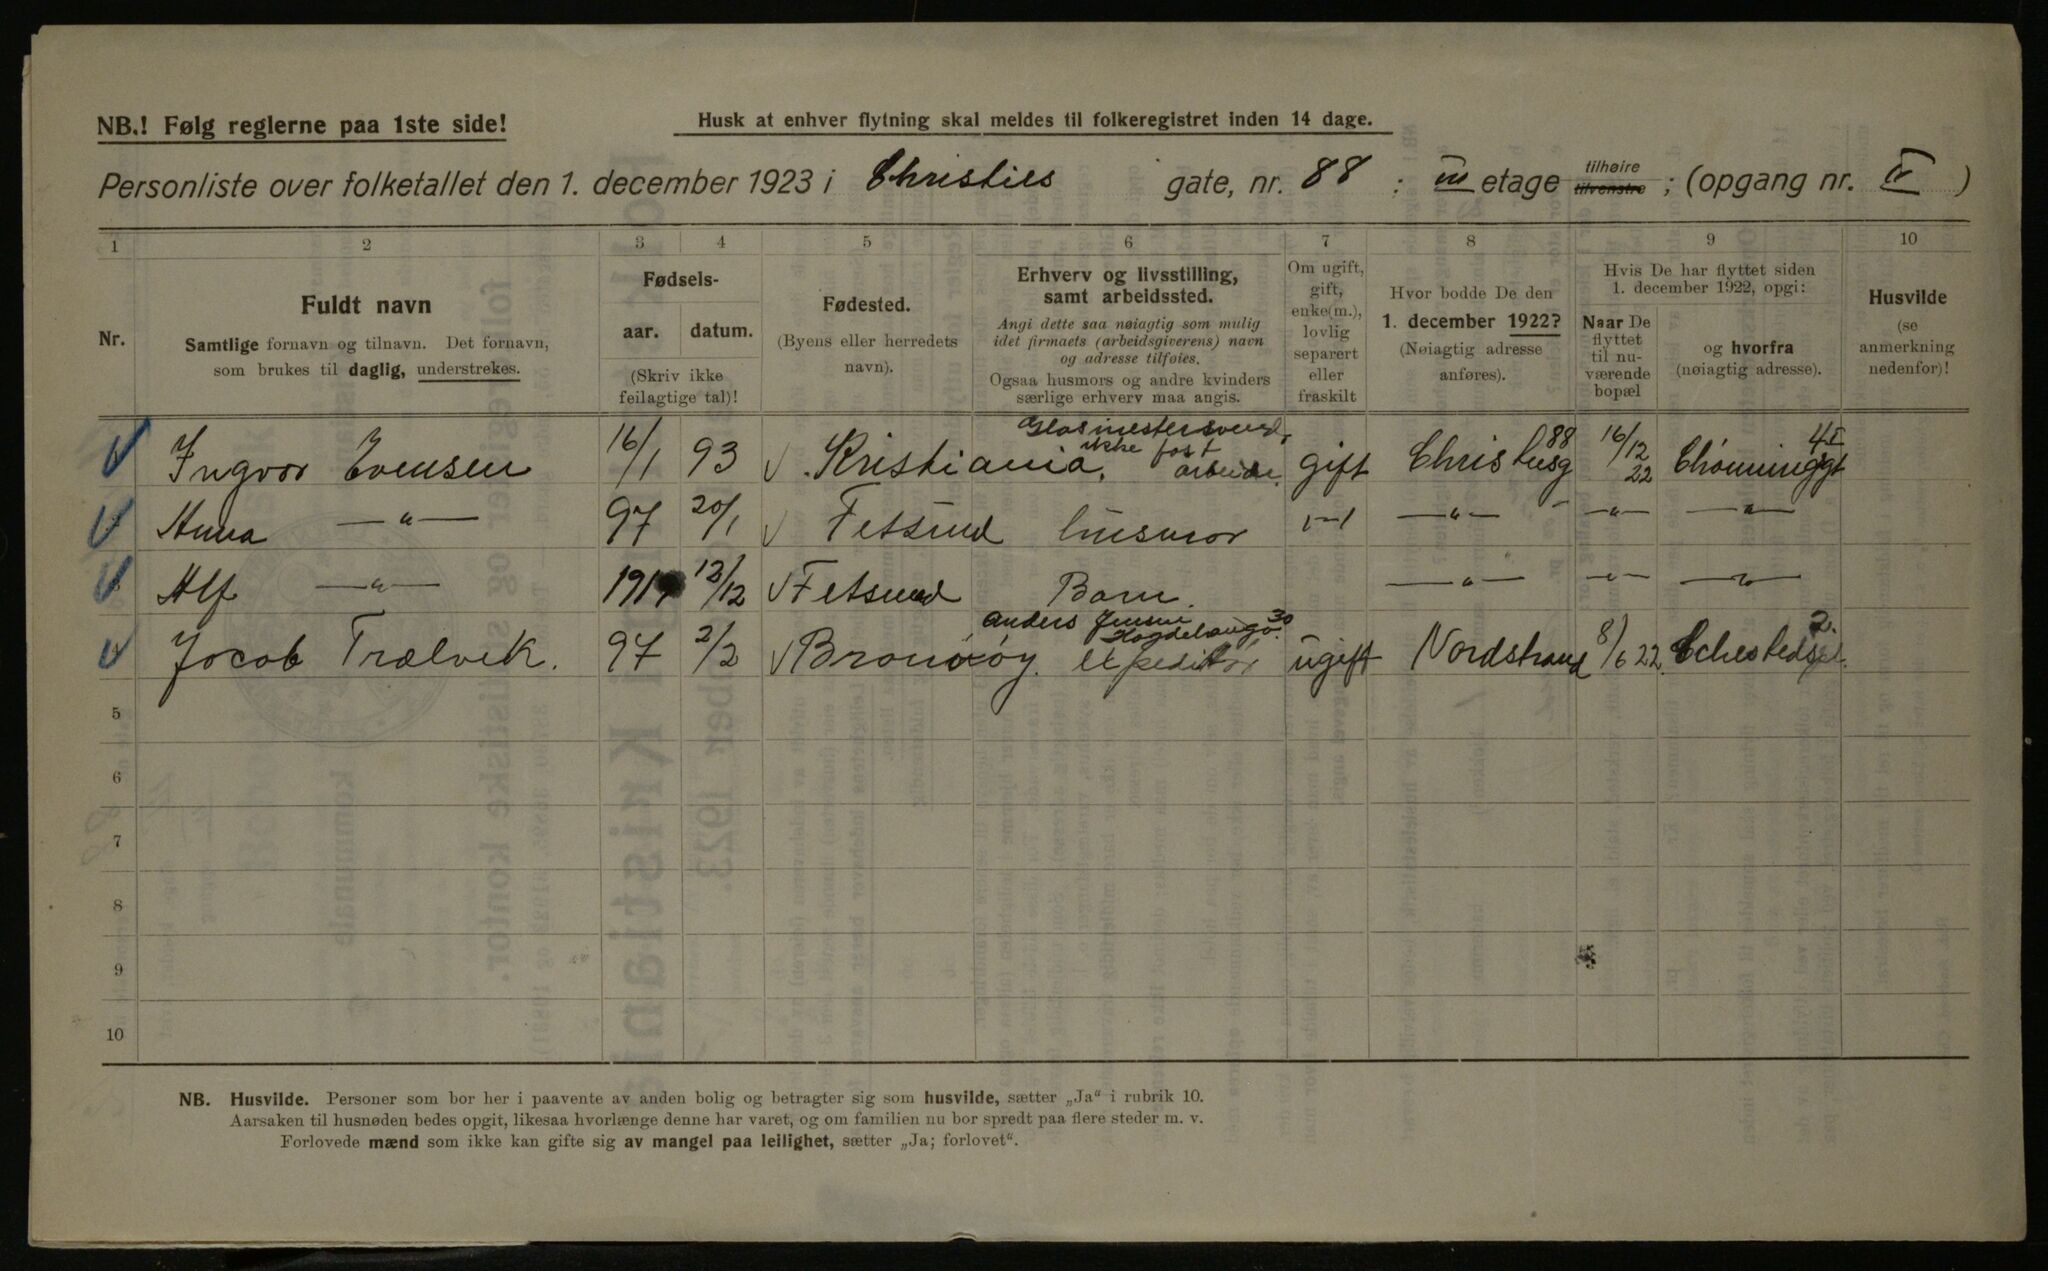 NB.! Følg reglerne paa 1ste side!
Husk at enhver flytning skal meldes til folkeregistret inden 14 dage.
Personliste over folketallet den 1. december 1923 i Christies gate, nr. 88 ; III etage tilhøire tilvenstre ; (opgang nr. II )
1 2 3 4 5 6 7 8 9 10
Nr.
Fuldt navn
Samtlige fornavn og tilnavn. Det fornavn,
som brukes til daglig, understrekes.
Fødsels-
aar. datum.
(Skriv ikke
feilagtige tal)!
Fødested.
(Byens eller herredets
navn).
Erhverv og livsstilling,
samt arbeidssted.
Angi dette saa nøiagtig som mulig
idet firmaets (arbeidsgiverens) navn
og adresse tilføies.
Ogsaa husmors og andre kvinders
særlige erhverv maa angis.
Om ugift,
gift,
enke(m.),
lovlig
separert
eller
fraskilt
Hvor bodde De den
1. december 1922?
(Nøiagtig adresse
anføres).
Hvis De har flyttet siden
1. december 1922, opgi:
Naar De
flyttet
til nu-
værende
bopæl
og hvorfra
(nøiagtig adresse).
Husvilde
(se
anmerkning
nedenfor)!
Glasmestersvend,
ikke fast
Ingvor Evensen 16/1 93 Kristiania. arbeide. gift 88 16/12 22 4 I
Anna —"— 97 20/1 Fetsund husmor —"— —"— —"— —"—
Alf —"— 1919 13/12 Fetsund Barn. —"— —"— —"—
Anders Jensen
30
Jocob Trælvik. 97 2/2 Brønøy expeditør ugift Nordstrand 8/6 22. 2.
5
6
7
8
9
10
NB. Husvilde. Personer som bor her i paavente av anden bolig og betragter sig som husvilde, sætter „Ja“ i rubrik 10.
Aarsaken til husnøden bedes opgit, likesaa hvorlænge denne har varet, og om familien nu bor spredt paa flere steder m. v.
Forlovede mænd som ikke kan gifte sig av mangel paa leilighet, sætter „Ja; forlovet“.